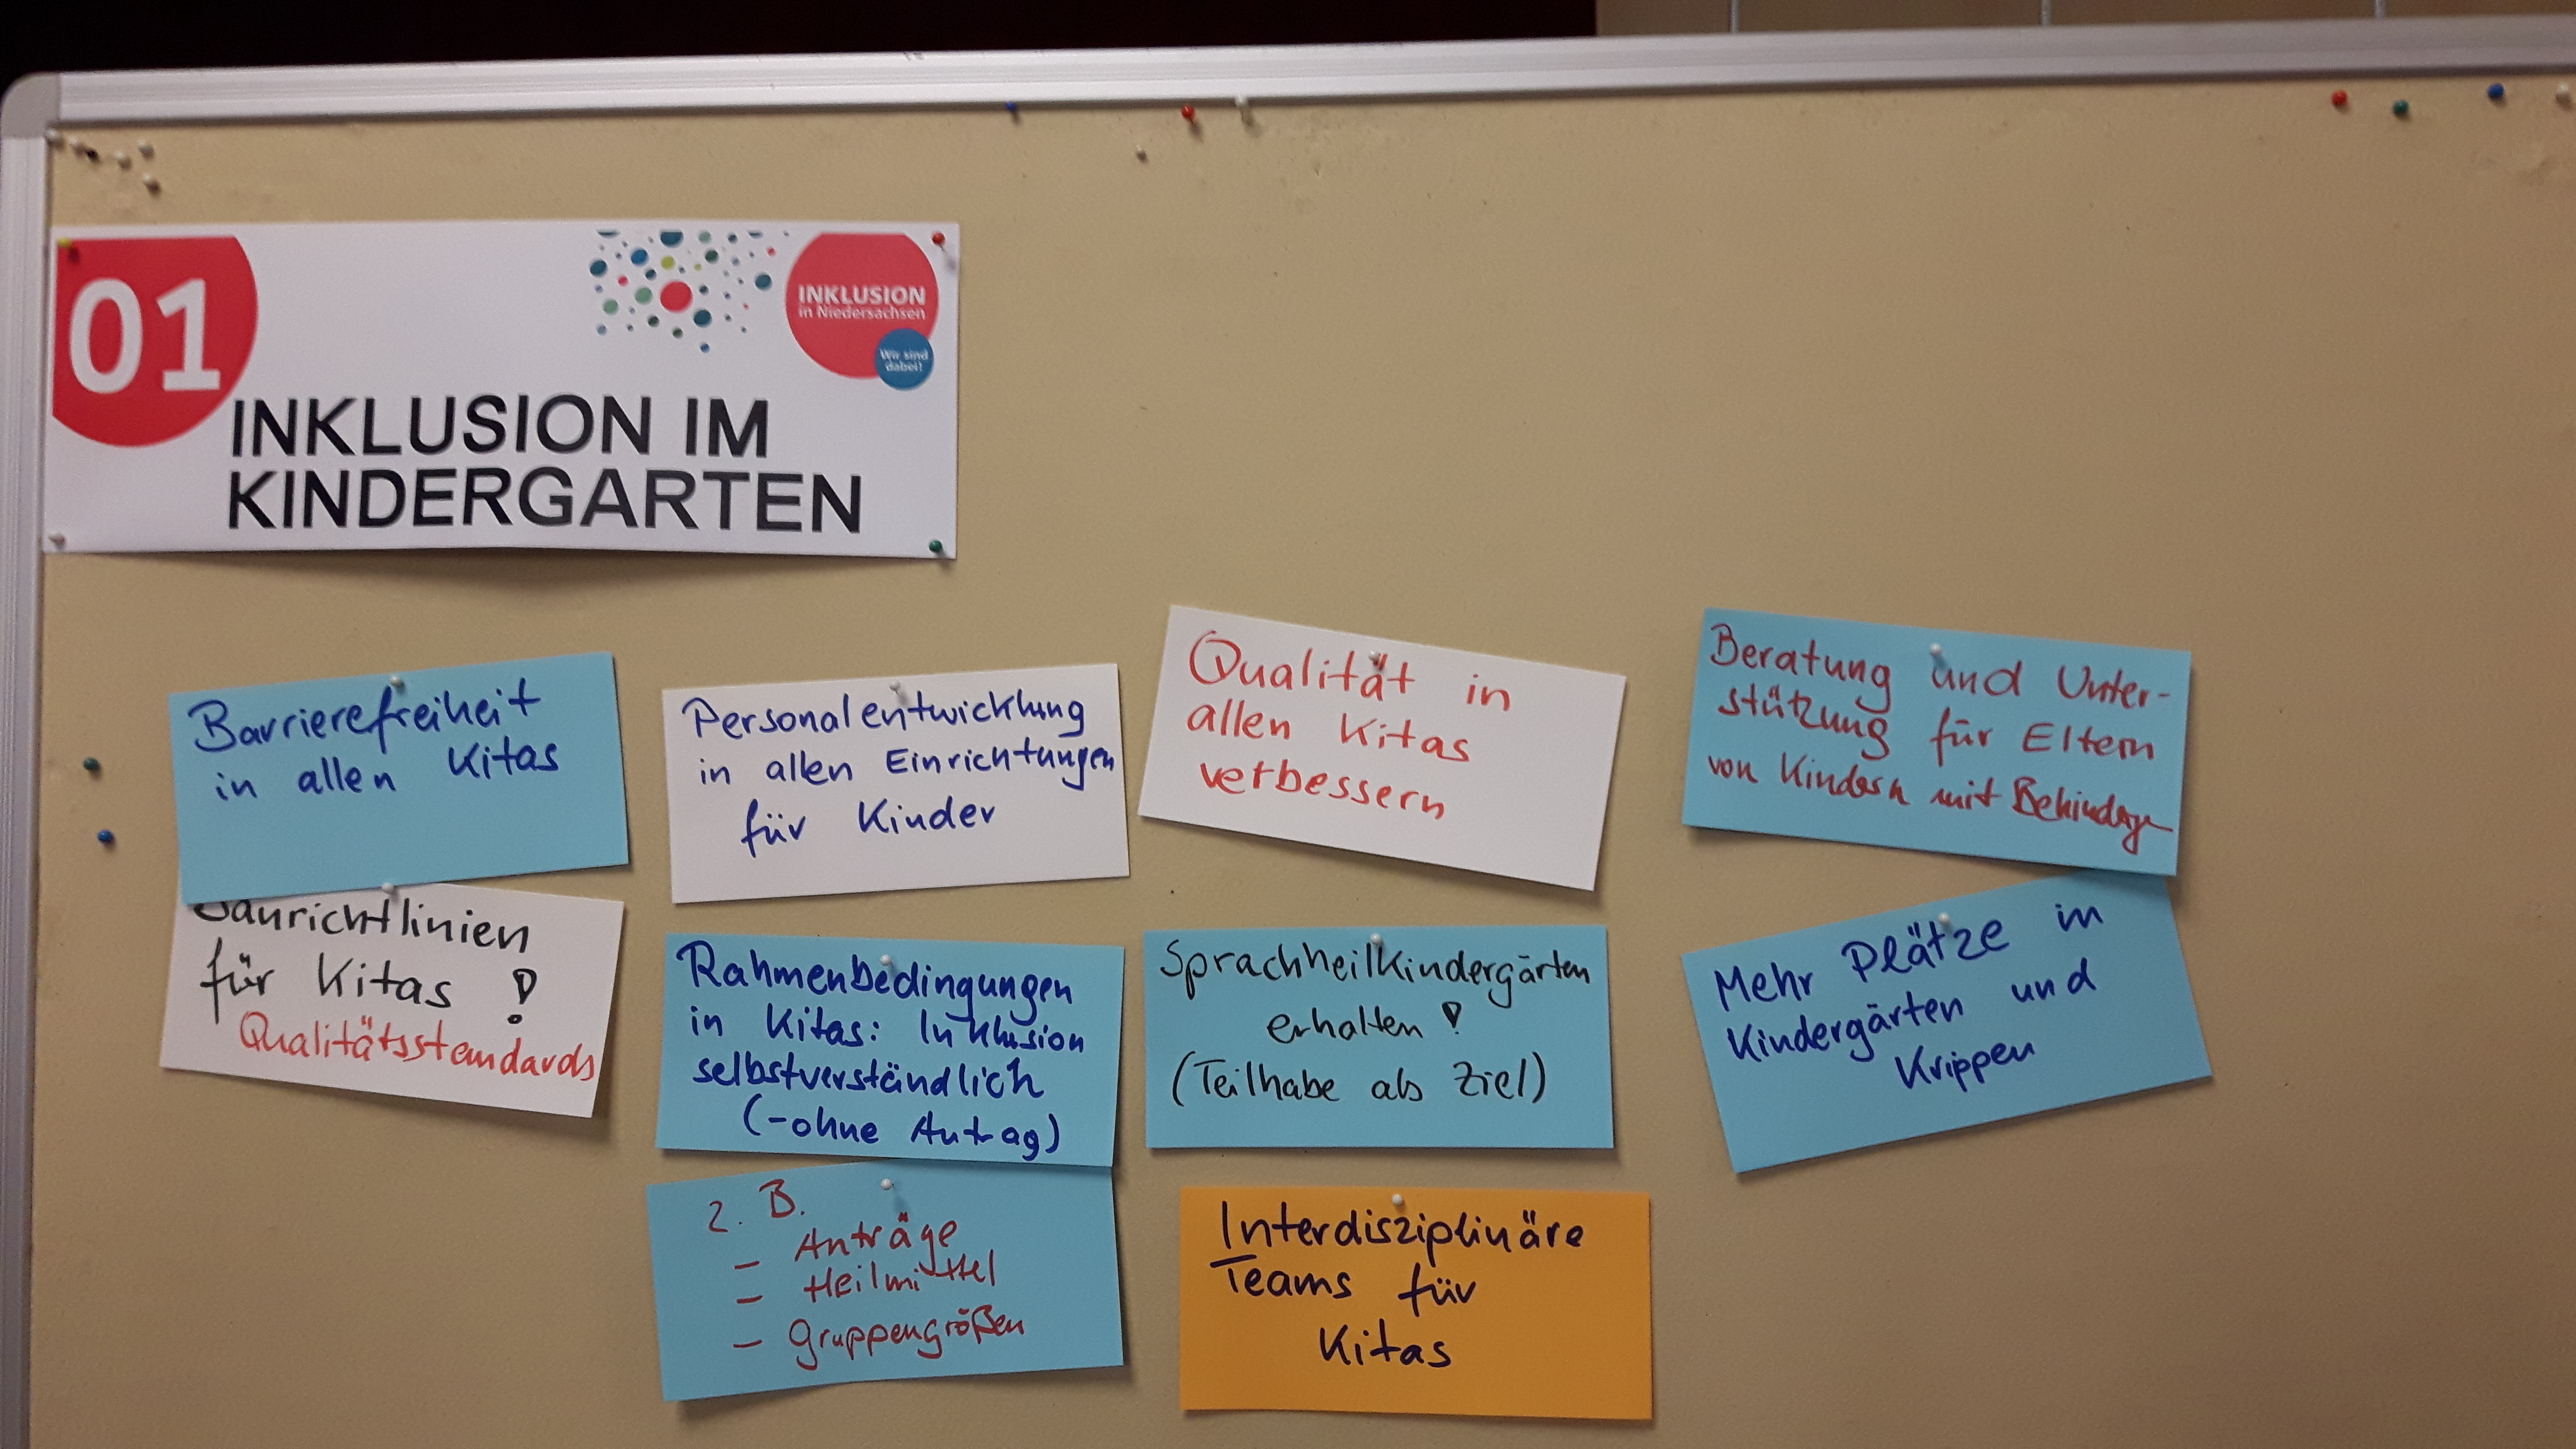 01
INKLUSION
in Niedersachsen
Wir sind
dabei!
INKLUSION IM
KINDERGARTEN
Barrierefreiheit
in allen Kitas
Baurichtlinien
für Kitas !
Qualitätsstandards
Personalentwicklung
in allen Einrichtungen
für Kinder
Rahmenbedingungen
in Kitas: Inklusion
selbstverständlich
(-ohne Antrag)
z. B.
- Anträge
- Heilmittel
- Gruppengrößen
Qualität in
allen Kitas
verbessern
Sprachheilkindergärten
erhalten !
(Teilhabe als Ziel)
Interdisziplinäre
Teams für
Kitas
Beratung und Unter-
stützung für Eltern
von Kindern mit
Mehr Plätze in
Kindergärten und
Krippen